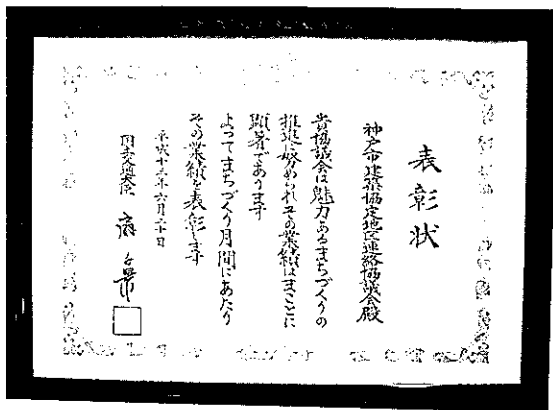 表彰状
神戸市建築協定地区連絡協議会殿
貴協議会は魅力あるまちづくりの
推進に努められその業績はまことに
顕著であります
よってまちづくり月間にあたり
その業績を表彰します
平成十三年六月二十日
国土交通大臣